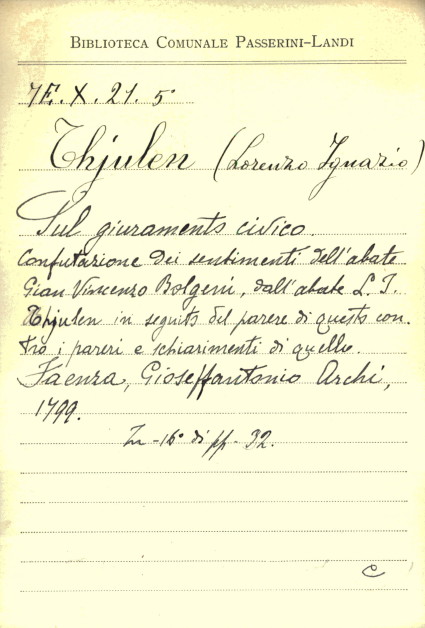 BIBLIOTECA COMUNALE PASSERINI-LANDI
7E. X. 21. 5°
Thjulen (Lorenzo Ignazio)
Sul giuramento civico.
Confutazione dei sentimenti dell'abate
Gian Vincenzo Bolgeni, dall'abate L. I.
Thjulen in seguito del parere di questo con.
tro i pareri e schiarimenti di quello.
Faenza, Gioseffantonio Archi,
1799.
In-16° di pp. 32.
C